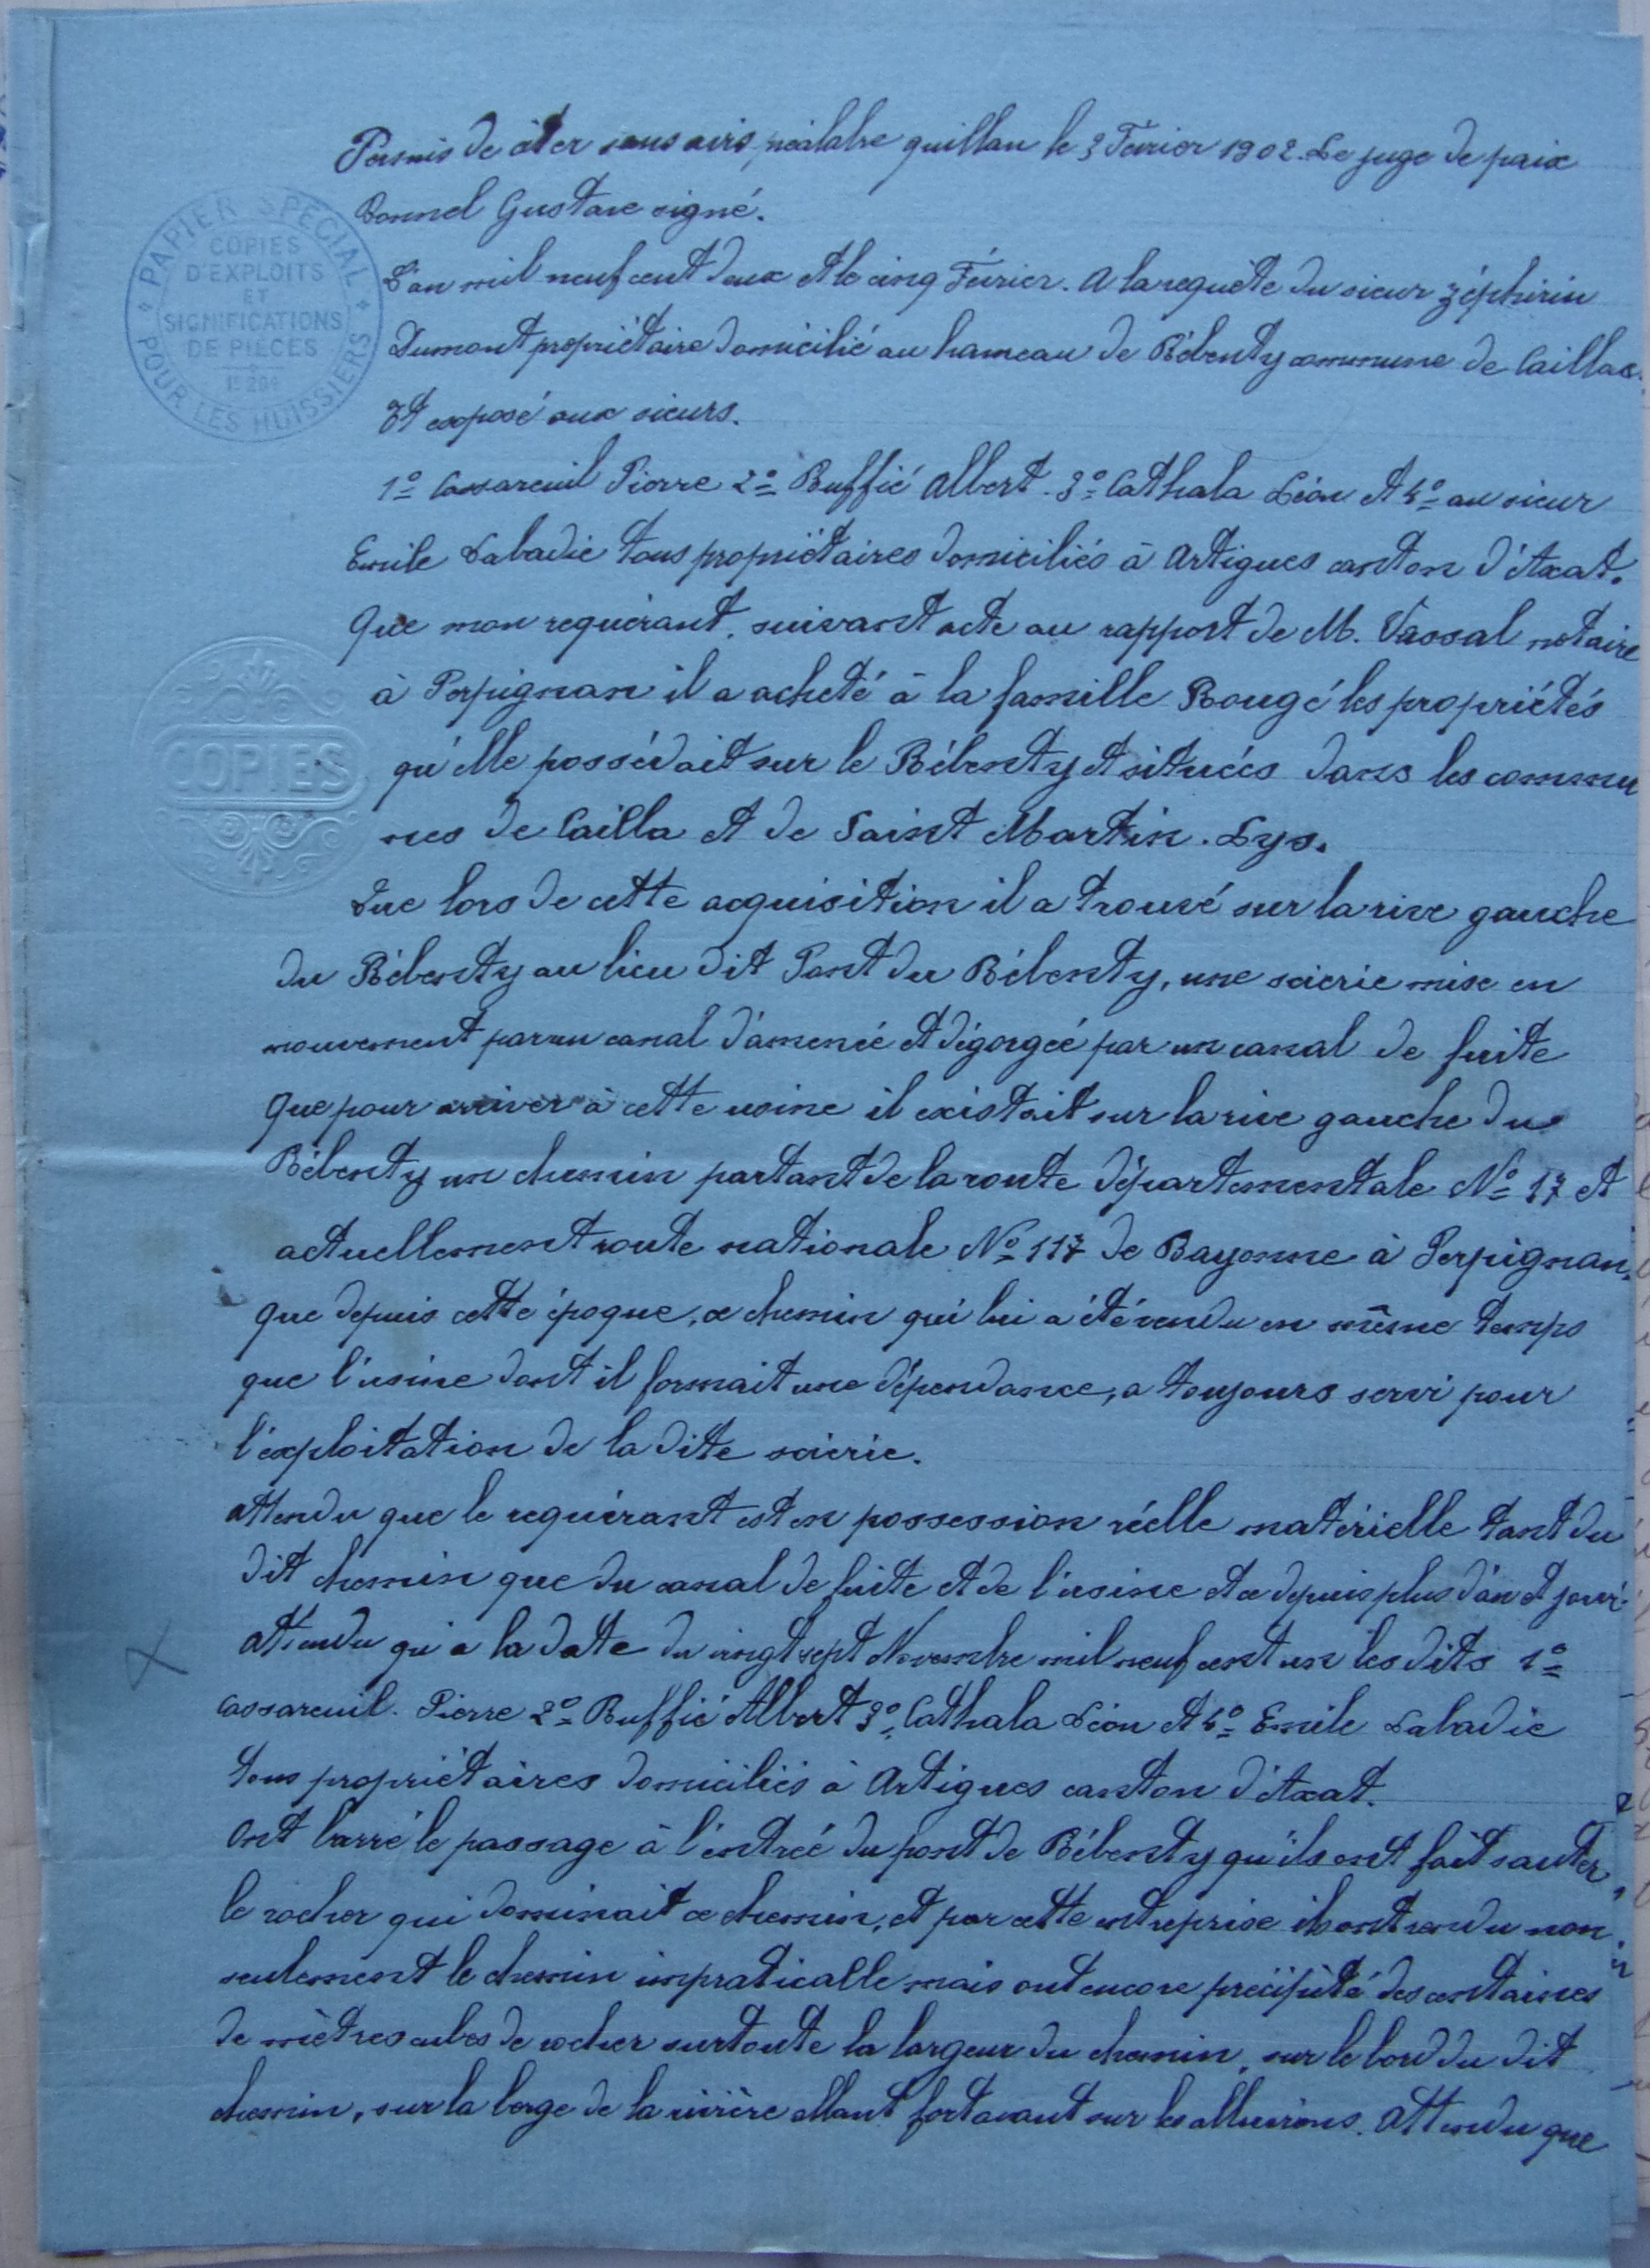 Permis de citer sans avis préalable quillan le 3 Février 1902. Le juge de paix
Bonnel Gustave signé.
PAPIER SPECIAL
POUR LES HUISSIERS
COPIES
D'EXPLOITS
ET
SIGNIFICATIONS
DE PIECES
L'an mil neuf cent deux et le cinq Février. A la requête du sieur Zéphirin
Dumont propriétaire domicilié au hameau de Rébenty commune de Cailla
Et exposé aux sieurs.
1º Cassareuil Pierre 2º Buffié Albert. 3º Cathala Léon et 4º au sieur
Emile Labadie tous propriétaires domiciliés à Artigues canton d'Axat.
Que mon requérant, suivant acte au rapport de M. Vassal notaire
à Perpignan il a acheté à la famille Rougé les propriétés
COPIES
qu'elle possédait sur le Rébenty et situées dans les commu
nes de Cailla et de Saint Martin. Lys.
Que lors de cette acquisition il a trouvé sur la rive gauche
du Rébenty au lieu dit Pont du Rébenty, une scierie mise en
mouvement par un canal d'amenée et dégorgée par un canal de fuite
Que pour arriver à cette usine il existait sur la rive gauche du
Rébenty un chemin partant de la route départementale Nº 17 et
actuellement route nationale Nº 117 de Bayonne à Perpignan,
que depuis cette époque, ce chemin qui lui a été vendu en même temps
que l'usine dont il formait une dépendance, a toujours servi pour
l'exploitation de la dite scierie.
Attendu que le requérant est en possession réelle matérielle tant du
dit chemin que du canal de fuite et de l'usine et ce depuis plus d'an et jour.
Attendu qu'a la date du vingt sept Novembre mil neuf cent un les dits 1º
Cassareuil. Pierre 2º Buffié Albert 3º. Cathala Léon et 4º Emile Labadie
tous propriétaires domiciliés à Artigues canton d'Axat.
Ont barré le passage à l'entrée du pont de Rébenty qu'ils ont fait sauter
le rocher qui dominait ce chemin, et par cette entreprise ils ont rendu non
seulement le chemin impraticable mais ont encore précipité des centaines
de mètres cubes de rocher sur toute la largeur du chemin, sur le bord du dit
chemin, sur la berge de la rivière allant fort avant sur les alluvions. Attendu que